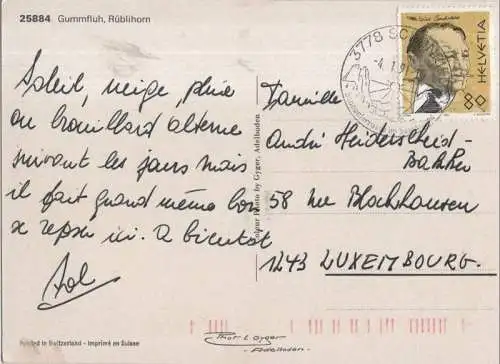 25884 Gummfluh, Rüblihorn
Soleil, neige, pluie
ou brouillard alterne
suivant les jours mais
il fait quand même bon
se reposer ici. A bientôt
Famille
André Heiderscheid-
58 rue Blochausen
1243 LUXEMBOURG.
3778 SCHÖNRIED
-4.1.9
HELVETIA
80
Colour Photo by Gyger, Adelboden
Printed in Switzerland - Imprimé en Suisse
Phot. E. Gyger
- Adelboden -